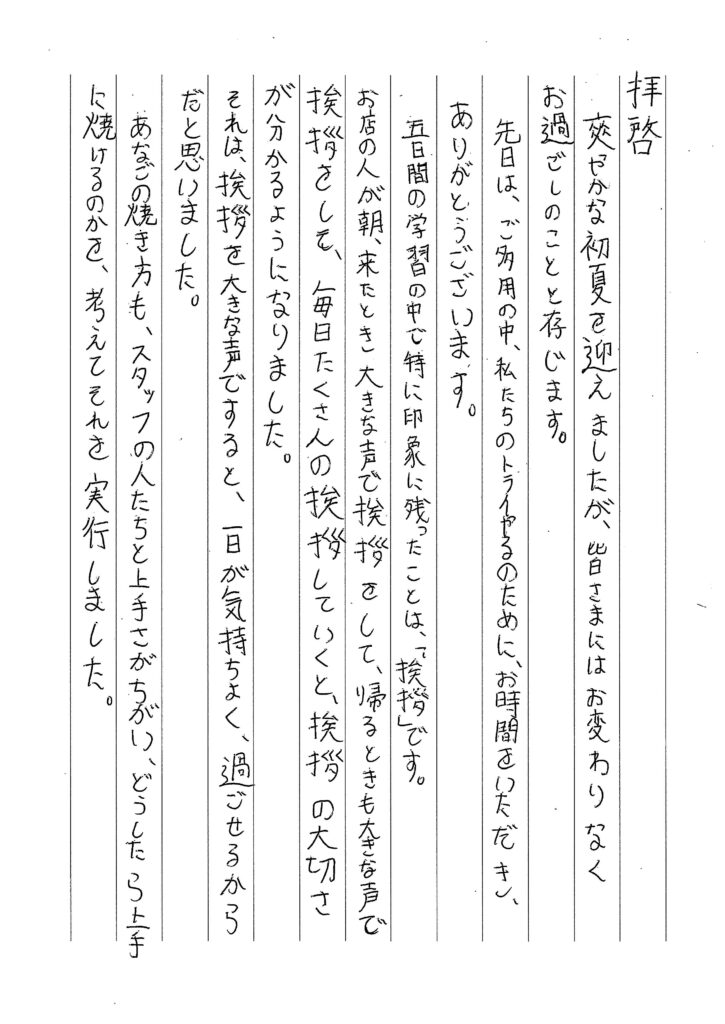 拝啓
爽やかな初夏を迎えましたが、皆さまにはお変わりなく
お過ごしのことと存じます。
先日は、ご多用の中、私たちのトライやるのために、お時間をいただき、
ありがとうございます。
五日間の学習の中で特に印象に残ったことは、「挨拶」です。
お店の人が朝、来たとき大きな声で挨拶をして、帰るときも大きな声で
挨拶をしそ、毎日たくさんの挨拶していくと、挨拶の大切さ
が分かるようになりました。
それは、挨拶を大きな声ですると、一日が気持ちよく、過ごせるから
だと思いました。
あなごの焼き方も、スタッフの人たちと上手さがちがい、どうしたら上手
に焼けるのかを、考えてそれを実行しました。